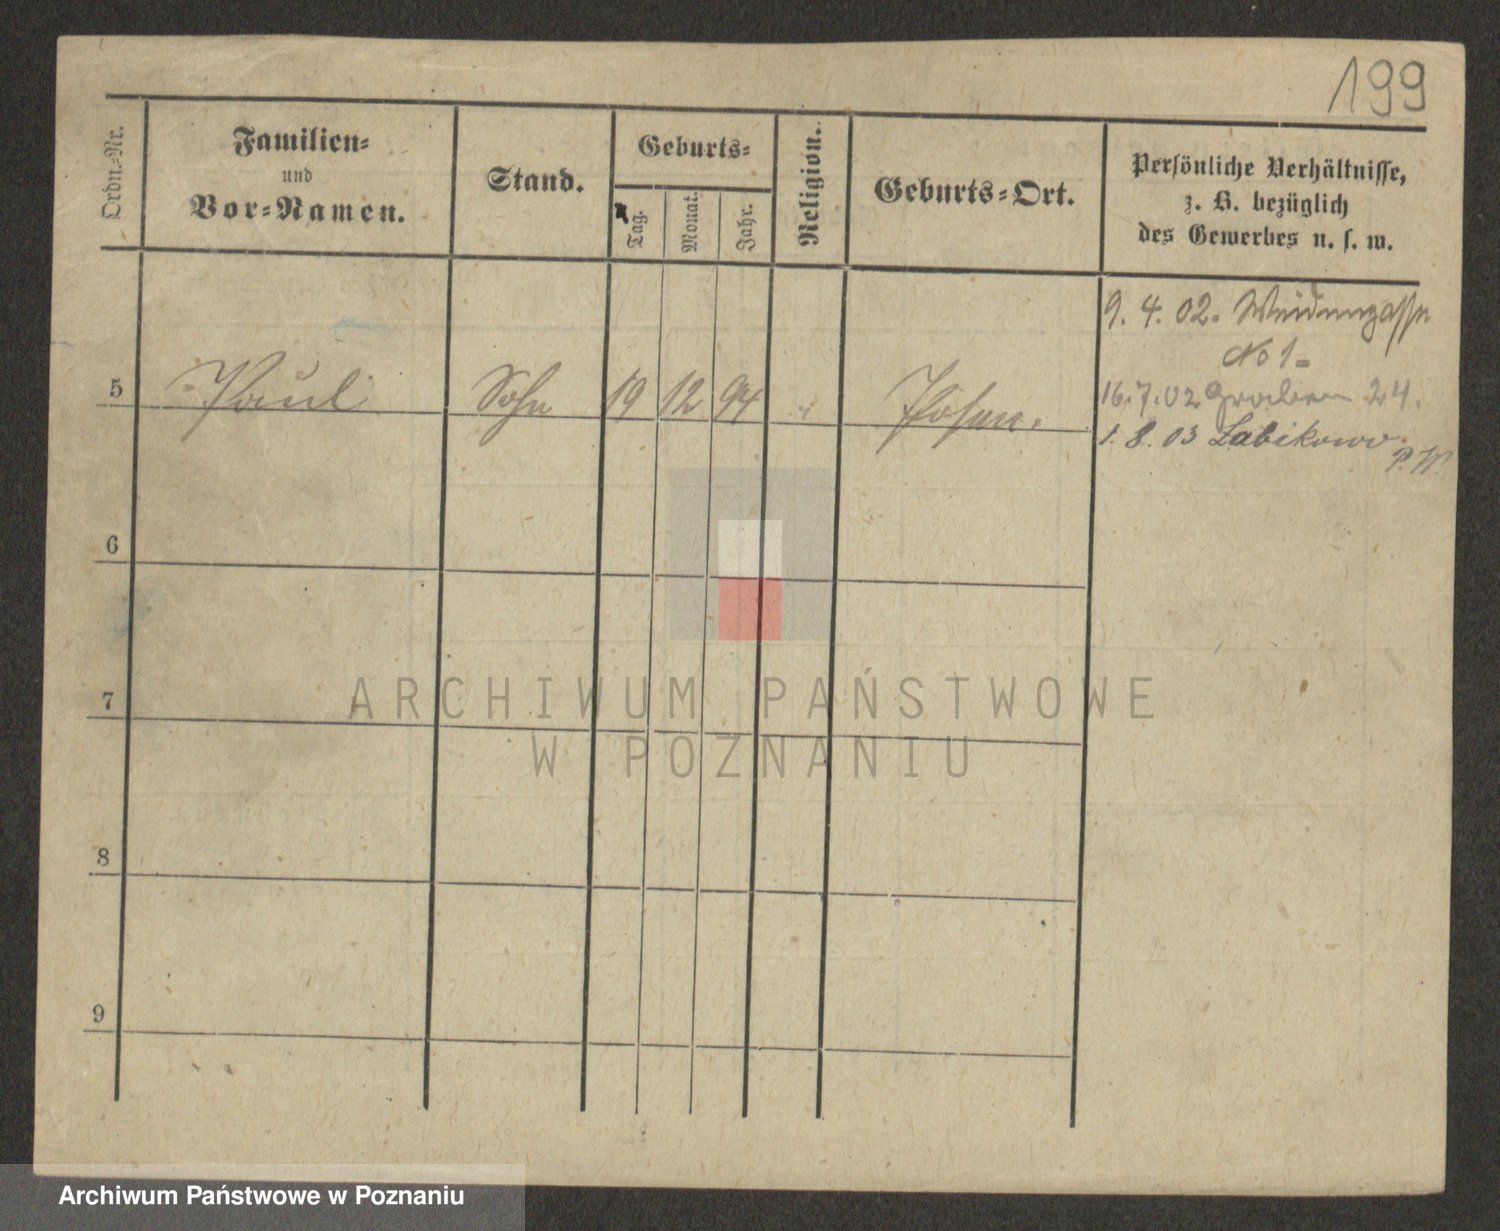 199
Ordn.-Nr.
Familien-
und
Vor-Namen.
Stand.
Geburts-
Tag.
Monat.
Jahr.
Religion.
Geburts-Ort.
Persönliche Verhältnisse,
z. B. bezüglich
des Gewerbes u. s. w.
9. 4. 02. Weidengasse
No 1
5 Paul Sohn 19 12 94 Posen.
16.7.02 Graben 24.
1. 8. 03 Labikowo
P. W.
6
7
ARCHIWUM PAŃSTWOWE
W POZNANIU
8
9
Archiwum Państwowe w Poznaniu